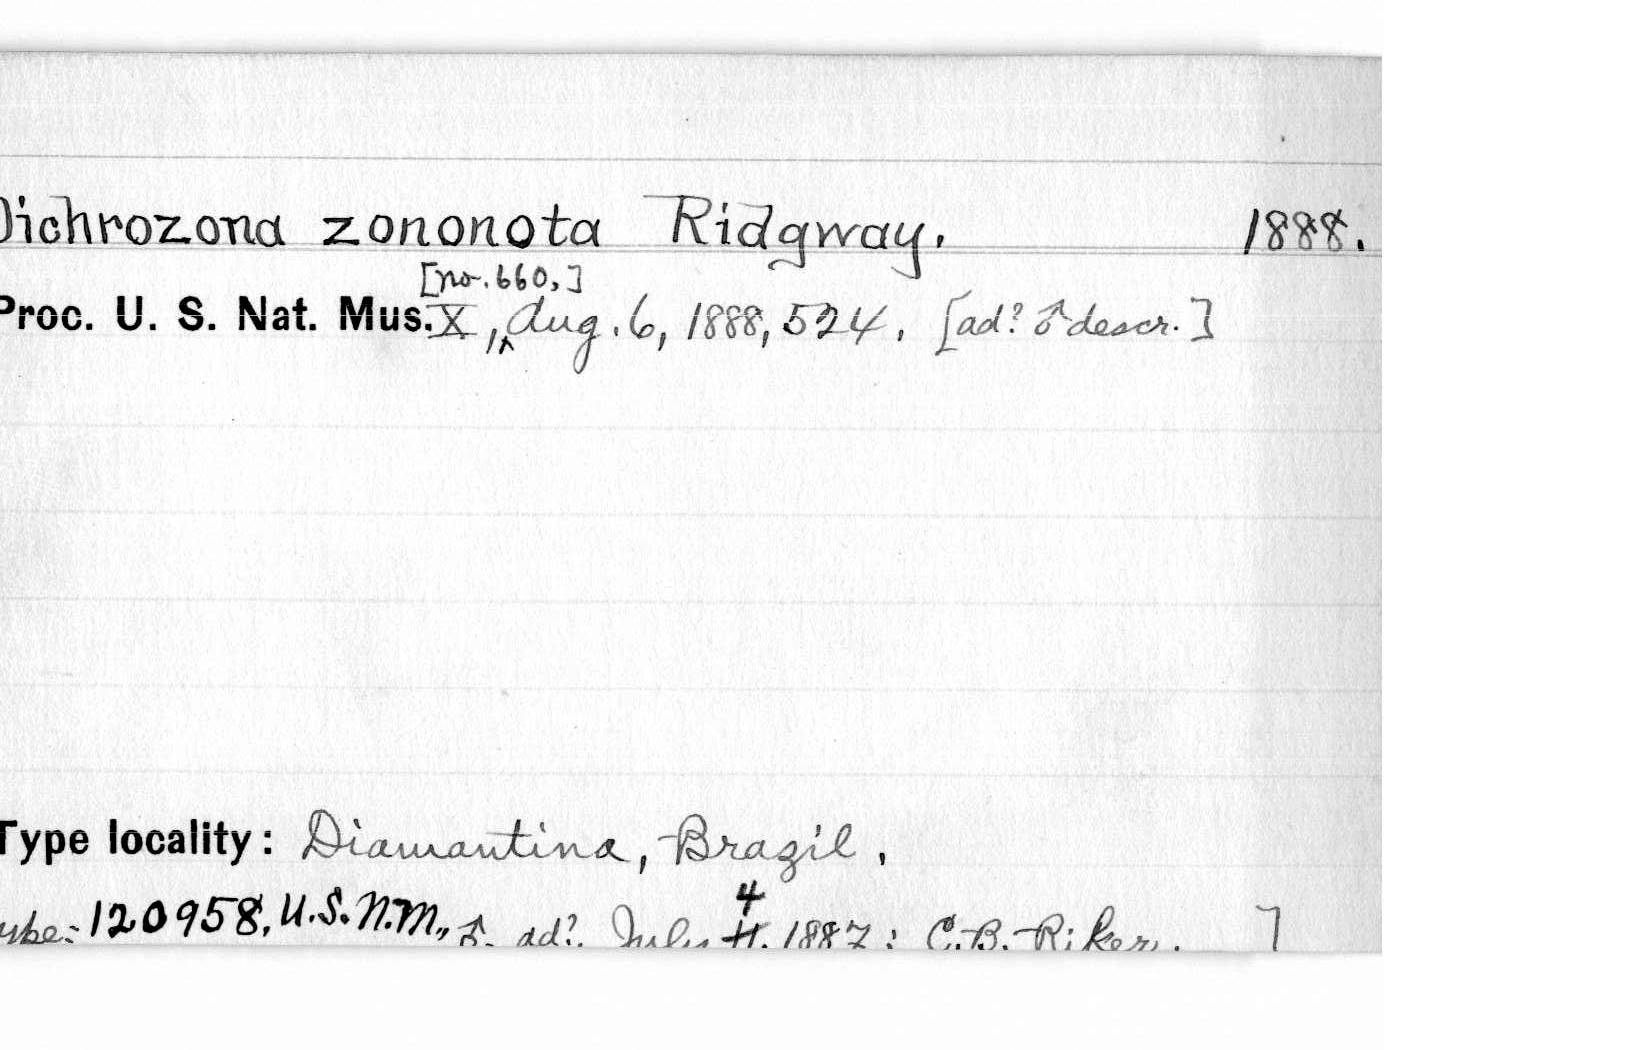 Dichrozona zononota Ridgway. 1888.
[no. 660,]
Proc. U. S. Nat. Mus. X, Aug. 6, 1888, 524. [ad? ♂ descr.]
Type locality: Diamantina, Brazil.
4
Type: 120958, U.S.N.M., ♂. ad?. July 1887; C.B. Riker. ]